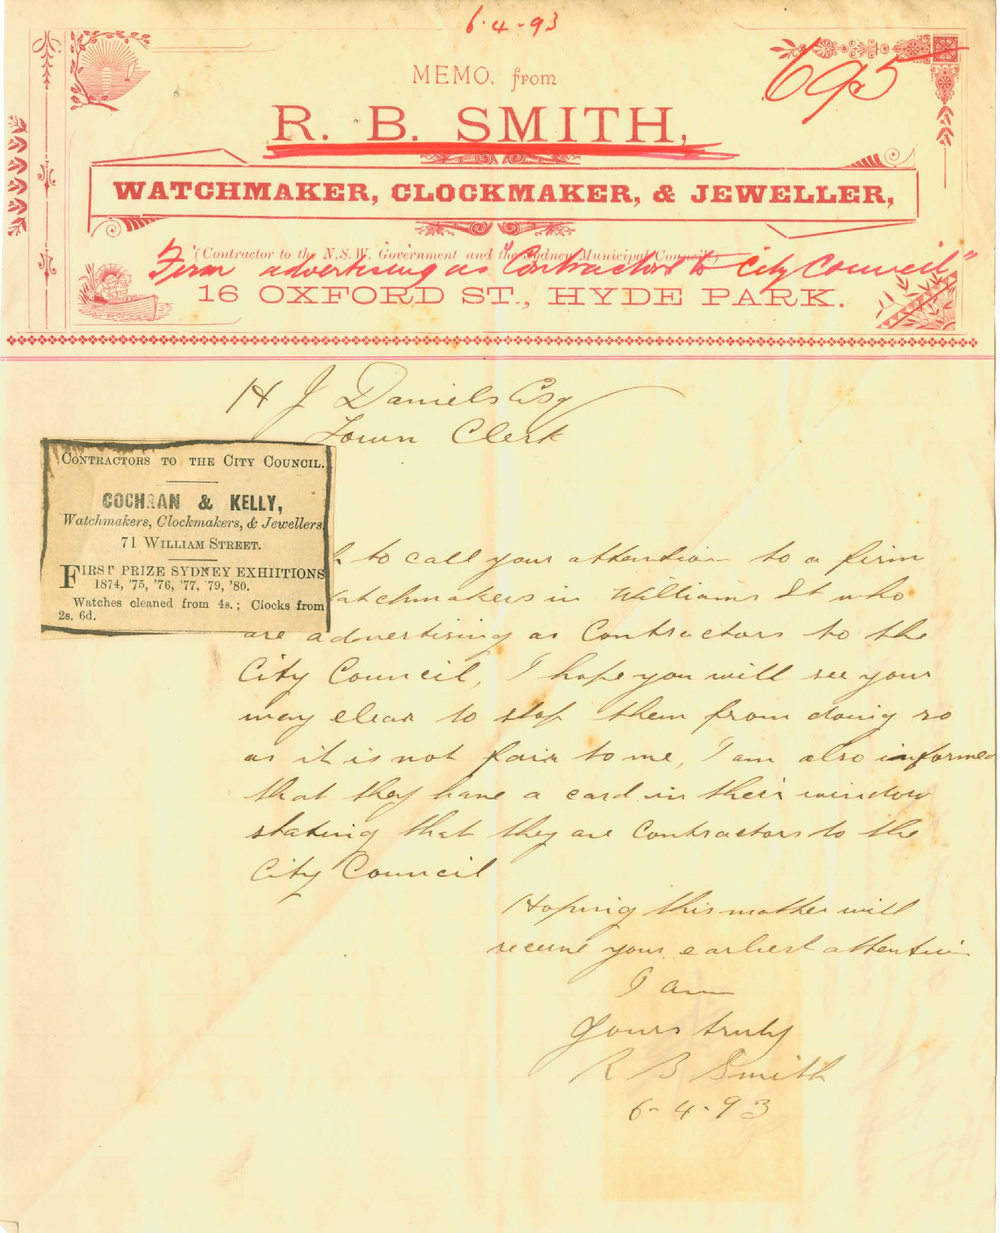 6-4-93
695
MEMO. from
R. B. SMITH,
WATCHMAKER, CLOCKMAKER, & JEWELLER,
(Contractor to the N.S.W. Government and the Sydney Municipal Council)
Firm advertising as "Contractors to City Council"
16 OXFORD ST., HYDE PARK.
H J Daniels Esq
Town Clerk
CONTRACTORS TO THE CITY COUNCIL.
COCHRAN & KELLY,
Watchmakers, Clockmakers, & Jewellers
71 WILLIAM STREET.
FIRST PRIZE SYDNEY EXHIITIONS
1874, '75, '76, '77, '79, '80.
Watches cleaned from 4s.; Clocks from
2s. 6d.
to call your attention to a firm
atchmakers in Williams St who
are advertising as Contractors to the
City Council, I hope you will see your
way clear to stop them from doing so
as it is not fair to me, I am also informed
that they have a card in their window
stating that they are Contractors to the
City Council
Hoping this matter will
receive your earliest attention
I am
Yours truly
R B Smith
6-4-93